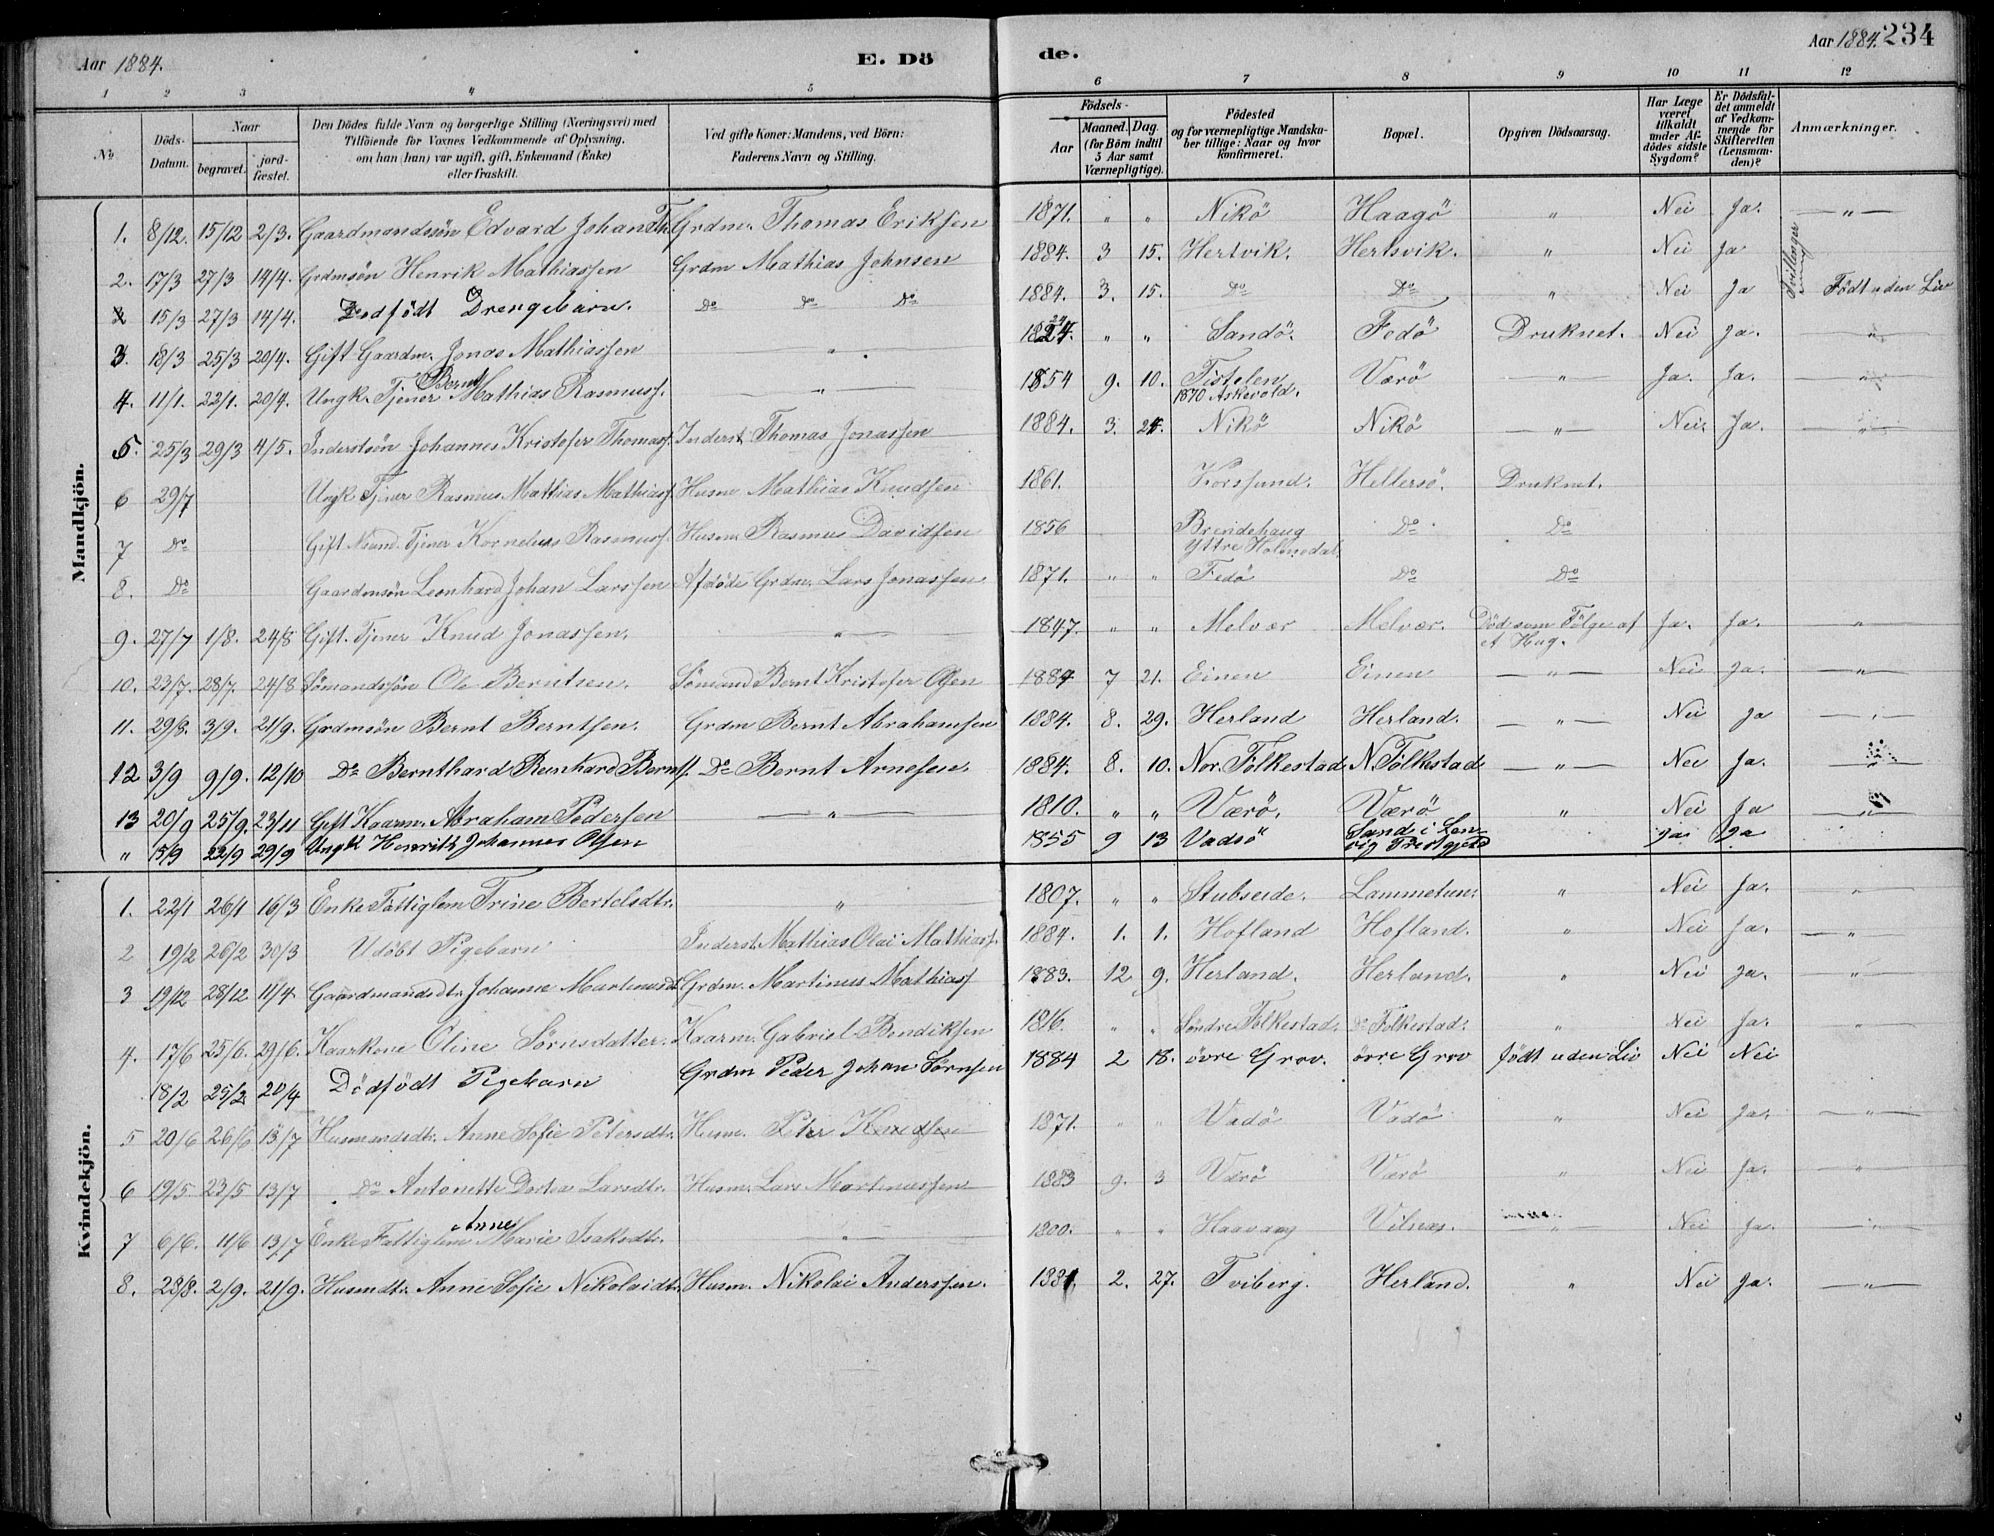 Aar 1884. E. Dö de. Aar 1884. 234
1 2 3 4 5 6 7 8 9 10 11 12
No
Döds-Datum.
Naar
begravet.
jord-fæstet.
Den Dödes fulde Navn og borgerlige Stilling (Næringsvei) med
Tilföiende for Voxnes Vedkommende af Oplysning,
om han (hun) var ugift, gift, Enkemand (Enke)
eller fraskilt.
Ved gifte Koner: Mandens, ved Börn:
Faderens Navn og Stilling.
Födsels-
Aar
Maaned. Dag.
(for Börn indtil
5 Aar samt
Værnepligtige).
Födested
og for værnepligtige Mandska-
ber tillige: Naar og hvor
konfirmeret.
Bopæl.
Opgiven Dödsaarsag.
Har Læge
været
tilkaldt
under Af-
dödes sidste
Sygdom?
Er Dödsfal-
det anmeldt
af Vedkom-
mende for
Skifteretten
(Lensman-
den)?
Anmærkninger.
Mandkjön.
1. 8/12. 15/12 2/3. Gaardmandssön Edvard Johan Th. Grdm. Thomas Eriksen 1871. " " Nikö Haagö " Nei Ja. — " —
2. 17/3 27/3 14/4. Grdmsön Henrik Mathiassen Grdm Mathias Johnsen 1884. 3 15. Hertvik. Hertsvik. " Nei Ja Tvillinger
15/3 27/3 14/4. Dødfödt Drengebarn. Do Do Do 1884. 3. 15. Do Do " Nei Ja Födt uden Liv
3. 18/3 25/3 20/4. Gift Gaardm. Jonas Mathiassen — " — 1824. " " Sandö. Fedö Druknet. Nei Ja. "
4. 11/1. 22/1. 20/4. Ungk. Tjener Bernt Mathias Rasmuss. — " — 1854 9. 10. Tistelen Værö — " — Ja. Ja. — " —
1870 Askevold.
5. 25/3 29/3 4/5. Inderstsön Johannes Kristofer Thomass. Inderst. Thomas Jonassen 1884. 3. 24. Nikö Nikö — " — Nei. Ja. — " —
6 29/7 Ungk Tjener Rasmus Mathias Mathiass. Husm. Mathias Knudsen 1861. Korssund. Hellersö. Druknet.
7 Do Gift Tjener Kornelius Rasmuss. Husm. Rasmus Davidsen 1856 Breidehaug Do Do
Yttre Holmedal.
8. Do Gaardmsön Leonhard Johan Larssen Afdöde Grdm. Lars Jonassen 1871. " " Fedö Do Do
9. 27/7 1/8. 24/8 Gift. Tjener Knud Jonassen. — " — 1847. " " Melvær Melvær. Död som Fölge af Ja. Ja. "
et Hug.
10. 23/7. 28/7. 24/8 Sömandssön Ole Berntsen. Sömand Bernt Kristofer Olsen 1884 7 21. Einen Einen — " — Nei Ja. — " —
11. 29/8. 3/9. 21/9. Grdmsön Bernt Berntsen. Grdm Bernt Abrahamsen 1884. 8. 29. Herland Herland. — " — Nei Ja — " —
12 3/9 9/9. 12/10 Do Bernthard Reinhard Bernts. Do Bernt Arnesen. 1884. 8. 10. Nor. Folkestad. N. Folkestad — " — Nei Ja.
13 20/9 25/9. 23/11 Gift Kaarm. Abraham Pedersen — " — 1810. " " Værö. Værö " Nei Ja
" 15/9 22/9 29/9 Ungk Henrik Johannes Olsen 1855 9 13 Vadsö Sand i Len- Ja Ja
vig Prestgjeld
Kvindekjön.
1. 22/1 26/1 16/3 Enke Fattiglem Trine Bertelsdtr. " 1807. " " Stubseide. Lammetun. " Nei Ja. "
2 19/2 26/2 30/3 Udöbt Pigebarn Inderst. Mathias Olai Mathiass. 1884. 1. 1. Hofland Hofland. " Nei Ja. — "
3 19/12 28/12 11/4 Gaardmandsdtr. Johanne Martinusdt. Grdm. Martinus Mathiass. 1883. 12 9. Herland. Herland. " Nei Ja. — " —
4. 17/6 25/6. 29/6. Kaarkone Oline Sörnsdatter. Kaarm. Gabriel Bendiksen 1816. " " Söndre Folkestad. Folkestad. " Nei Ja. "
18/2 25/2 20/4 Dödfödt Pigebarn Grdm Peder Johan Sörnsen 1884 2 18. övre Grov. övre Grov födt uden Liv Nei Nei
5 20/6 26/6 13/7 Husmandsdtr. Anne Sofie Petersdtr. Husm. Peter Knudsen 1871. " " Vadö Vadö " Nei Ja. — " —
6 19/5 23/5 13/7 Do Antonette Dortea Larsdtr. Husm. Lars Martinussen 1883 9. 3 Værö Værö " Nei Ja. — " —
7 6/6. 11/6 13/7 Enke Fattiglem Anne Marie Isaksdtr. — " — 1800. " " Haavaag Vilnæs. " Nei Ja. — " —
8. 28/8. 2/9. 21/9. Husmdtr. Anne Sofie Nikolaidtr. Husm. Nikolai Anderssen. 1881. 2. 27. Tviberg. Herland. " Nei Ja. — " —